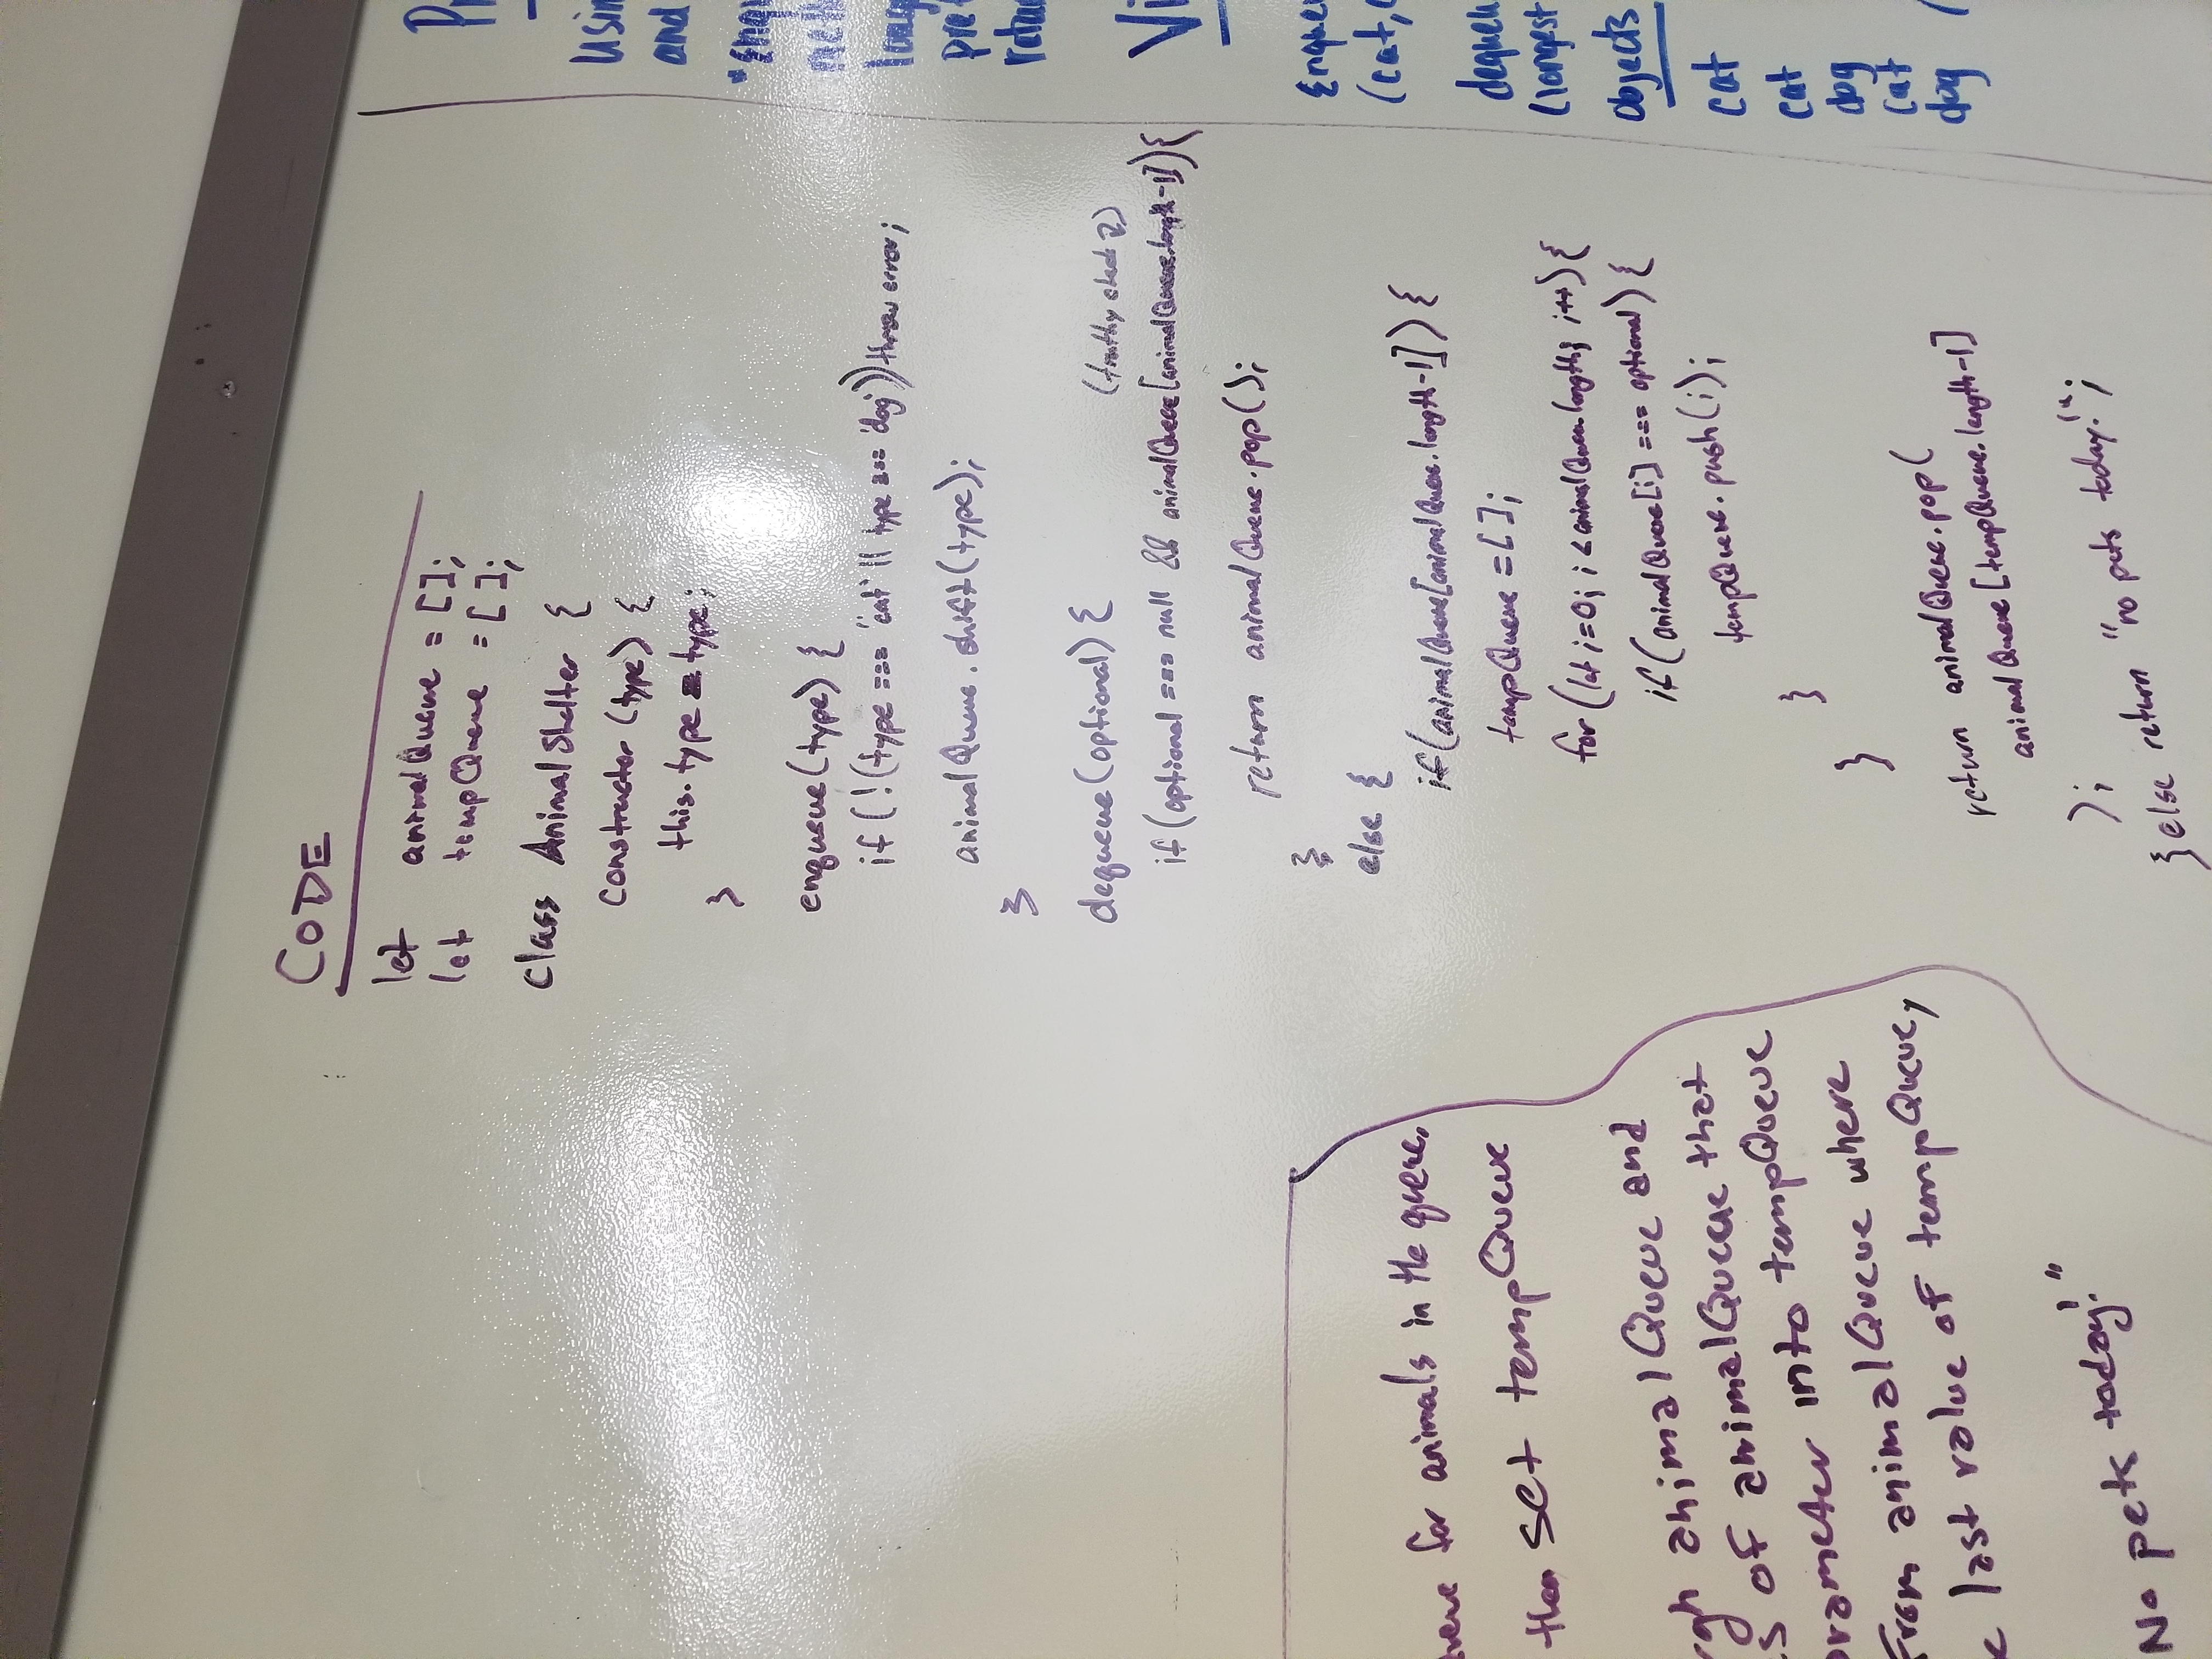 CODE
let animalQueue = [];
let tempQueue = [];
class AnimalShelter {
constructor (type) {
this.type = type;
}
enqueue(type) {
if (!(type === 'cat' || type === 'dog')) throw error;
animalQueue.shift(type);
}
dequeue(optional) {
(truthy check)
if (optional === null && animalQueue[animalQueue.length-1]){
return animalQueue.pop();
}
else {
if(animalQueue[animalQueue.length-1]) {
tempQueue = [];
for (let i=0; i < animalQueue.length; i++) {
if (animalQueue[i] === optional) {
tempQueue.push(i);
}
}
return animalQueue.pop(
animalQueue[tempQueue.length-1]
);
} else return "no pets today!";
for animals in the queue,
then set tempQueue
animalQueue and
of animalQueue that
into tempQueue
From animalQueue where
last value of tempQueue,
No pets today!"
and
(longest
objects
cat
cat
dog
cat
dog